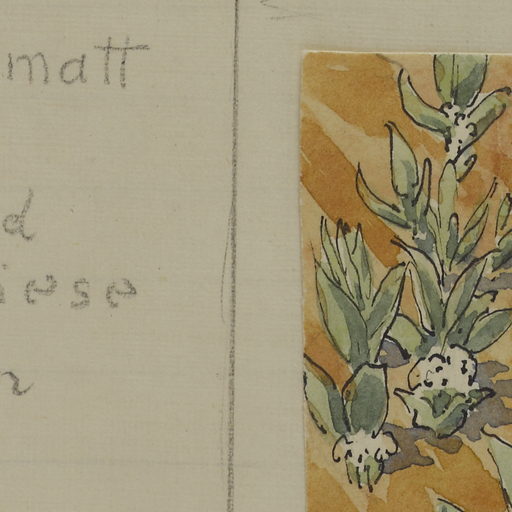 matt
d
iese
r